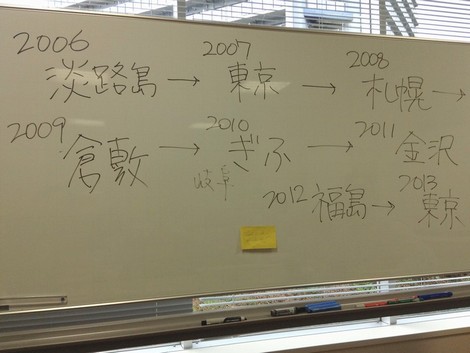 2006 2007 2008
淡路島 → 東京 → 札幌 →
2009 2010 2011
倉敷 → ぎふ → 金沢
岐阜
2012 福島 → 2013 東京